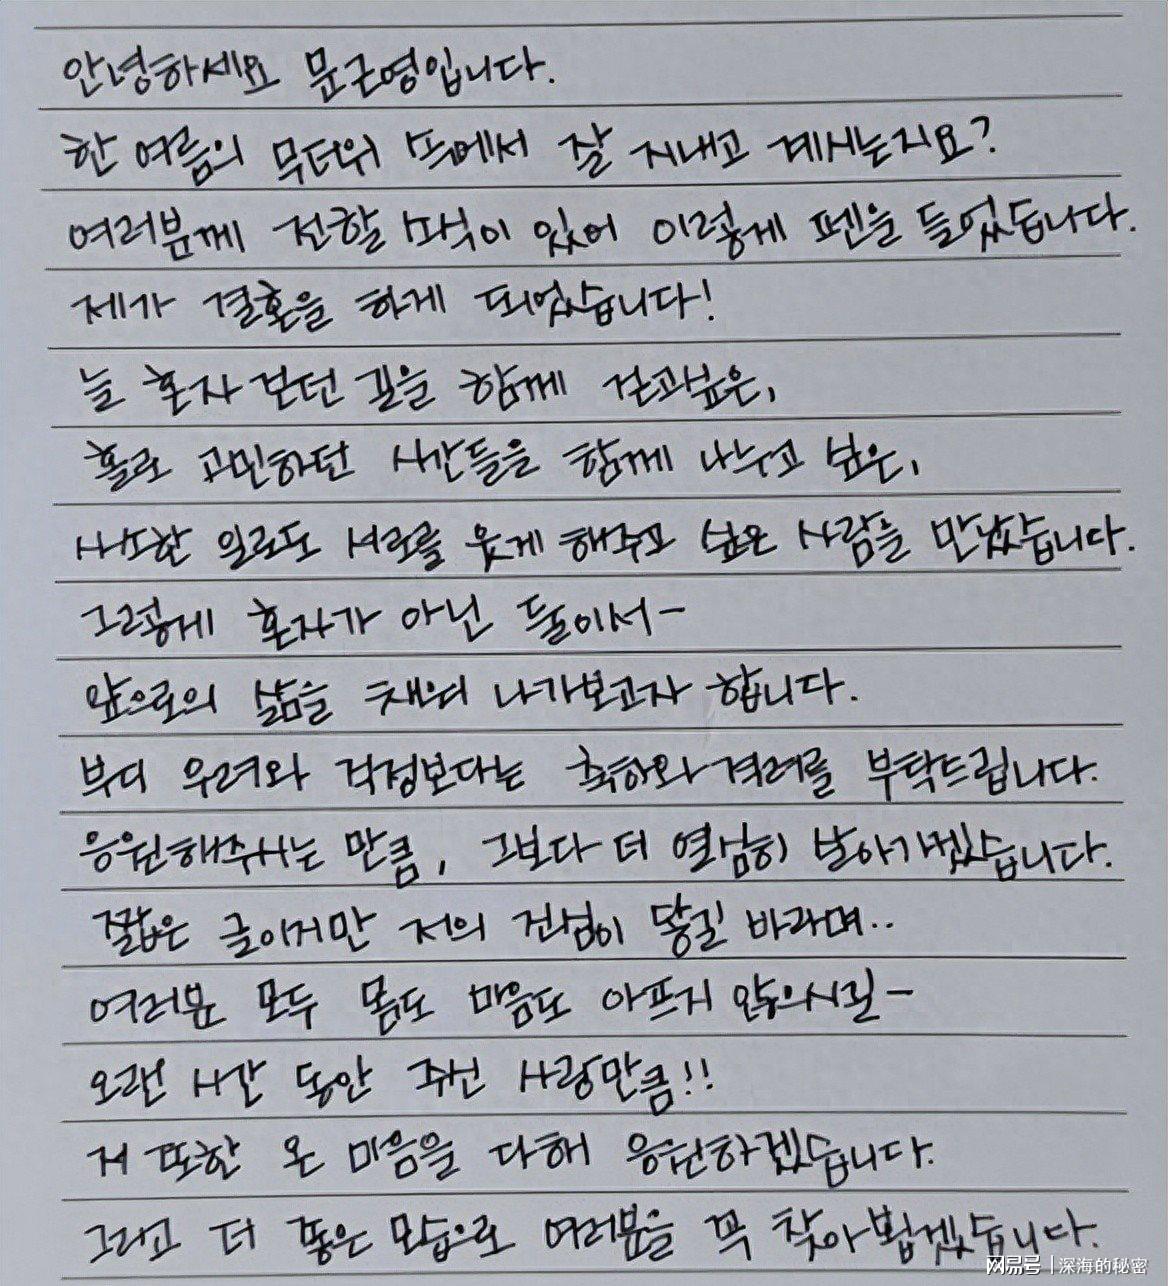 안녕하세요 문근영입니다.
한 여름의 무더위 속에서 잘 지내고 계시는지요?
여러분께 전할 소식이 있어 이렇게 펜을 들었습니다.
제가 결혼을 하게 되었습니다!
늘 혼자 보던 길을 함께 걷고싶은,
홀로 고민하던 시간들을 함께 나누고 싶은,
사소한 일로도 서로를 웃게 해주고 싶은 사람을 만났습니다.
그렇게 혼자가 아닌 둘이서-
앞으로의 삶을 채워 나가보고자 합니다.
부디 우려와 걱정보다는 축하와 격려를 부탁드립니다.
응원해주시는 만큼, 그보다 더 열심히 날아가겠습니다.
짧은 글이지만 저의 진심이 닿길 바라며..
여러분 모두 몸도 마음도 아프지 않으시길-
오랜 시간 동안 주신 사랑만큼!!
저 또한 온 마음을 다해 응원하겠습니다.
그리고 더 좋은 모습으로 여러분을 꼭 찾아뵙겠습니다.
网易号 | 深海的秘密